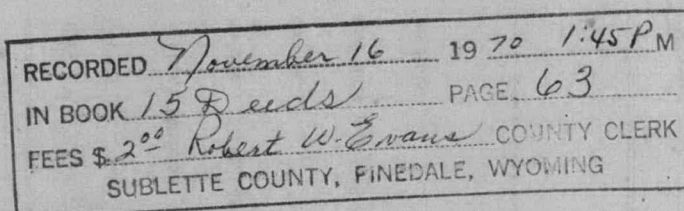 RECORDED November 16 1970 1:45 P M
IN BOOK 15 Deeds PAGE 63
FEES $ 2.00 Robert W. Evans COUNTY CLERK
SUBLETTE COUNTY, PINEDALE, WYOMING